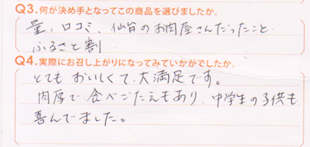 Q3.何が決め手となってこの商品を選びましたか。
量、口コミ、仙台のお肉屋さんだったこと
ふるさと割
Q4.実際にお召し上がりになってみていかがでしたか。
とてもおいしくて大満足です。
肉厚で食べごたえもあり、中学生の子供も
喜んでました。